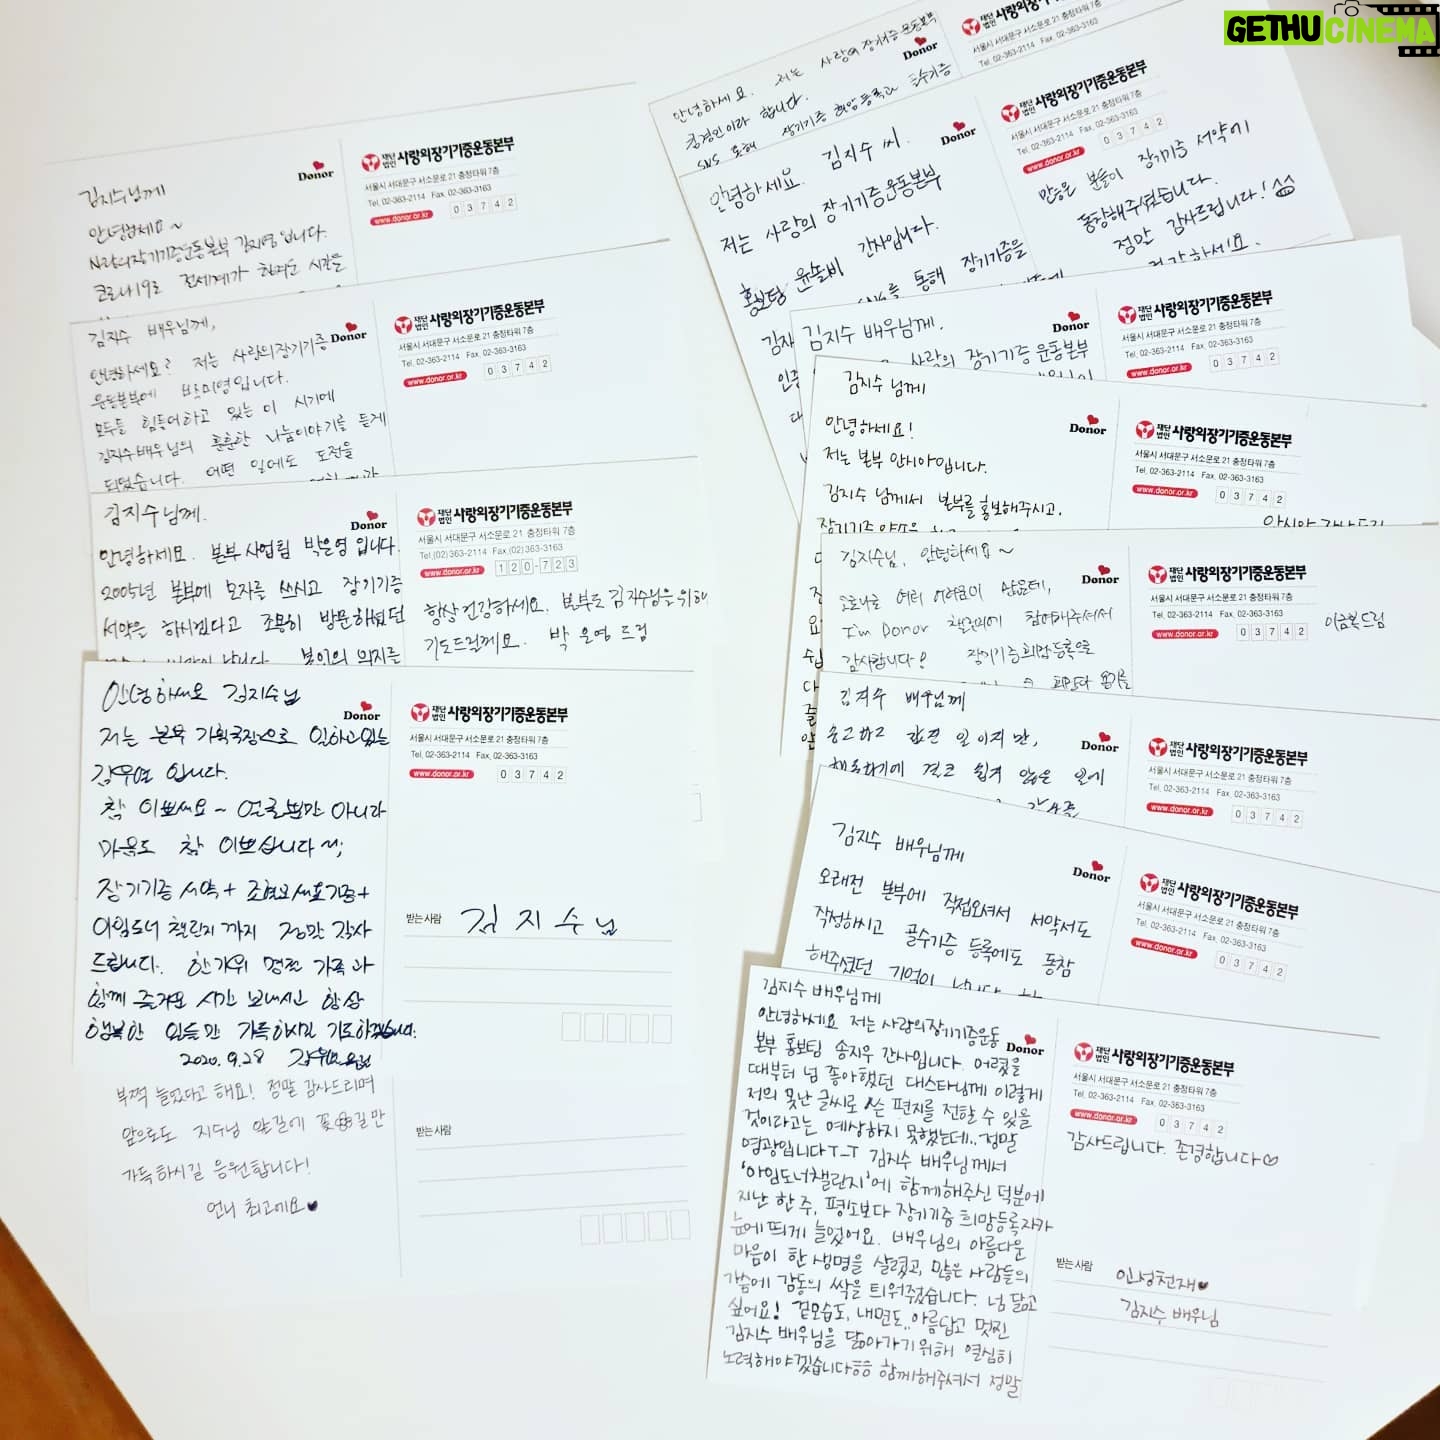 GETHUCINEMA
김지수님께
안녕하세요~
사랑의장기기증운동본부 김지영입니다.
코로나19로 전세계가 힘겨운 시간을
Donor
재단법인 사랑의장기기증운동본부
서울시 서대문구 서소문로 21 충정타워 7층
Tel. 02-363-2114 Fax. 02-363-3163
www.donor.or.kr 03742
김지수 배우님께,
안녕하세요? 저는 사랑의장기기증
운동본부에 박미영입니다.
모두들 힘들어하고 있는 이 시기에
김지수배우님의 훈훈한 나눔이야기를 듣게
되었습니다. 어떤 일에도 도전을
Donor
재단법인 사랑의장기기증운동본부
서울시 서대문구 서소문로 21 충정타워 7층
Tel. 02-363-2114 Fax. 02-363-3163
www.donor.or.kr 03742
김지수님께.
안녕하세요. 본부 사업팀 박은영입니다.
2005년 본부에 모자를 쓰시고 장기기증
서약을 하시겠다고 조용히 방문하셨던
본인의 의지를
Donor
재단법인 사랑의장기기증운동본부
서울시 서대문구 서소문로 21 충정타워 7층
Tel.(02)363-2114 Fax.(02)363-3163
www.donor.or.kr 120-723
항상 건강하세요. 본부도 김지수님을 위해
기도드릴께요. 박은영 드림
안녕하세요 김지수님
저는 본부 기획국장으로 일하고있는
김우영 입니다.
참 이쁘세요~ 얼굴뿐만 아니라
마음도 참 이쁘십니다~;
장기기증 서약+조혈모세포기증+
아임도너 챌린지까지 정말 감사
드립니다. 한가위 명절 가족과
함께 즐거운 시간 보내시고 항상
행복한 일들만 가득하시길 기도하겠습니다.
2020. 9. 28
Donor
재단법인 사랑의장기기증운동본부
서울시 서대문구 서소문로 21 충정타워 7층
Tel. 02-363-2114 Fax. 02-363-3163
www.donor.or.kr 03742
받는사람 김지수님
부쩍 늘었다고 해요! 정말 감사드리며
앞으로도 지수님 앞길에 꽃길만
가득하시길 응원합니다!
언니 최고예요♥
받는사람
안녕하세요. 저는 사랑의장기기증운동본부
이라 합니다.
SNS 통해 장기기증 희망등록과 골수기증
Donor
재단법인
서울시 서대문구 서소문로 21 충정타워 7층
Tel. 02-363-2114 Fax. 02-363-3163
안녕하세요. 김지수 씨.
저는 사랑의 장기기증운동본부
홍보팀 윤솔비 간사입니다.
통해 장기기증을
Donor
재단법인 사랑의장기기증운동본부
서울시 서대문구 서소문로 21 충정타워 7층
Tel. 02-363-2114 Fax. 02-363-3163
www.donor.or.kr 03742
많은 분들이 장기기증 서약에
동참해주셨습니다.
정말 감사드립니다!
김지수 배우님께.
사랑의 장기기증운동본부
Donor
재단법인 사랑의장기기증운동본부
서울시 서대문구 서소문로 21 충정타워 7층
Tel. 02-363-2114 Fax. 02-363-3163
www.donor.or.kr 03742
김지수 님께
안녕하세요!
저는 본부 안시아입니다.
김지수 님께서 본부를 홍보해주시고,
Donor
재단법인 사랑의장기기증운동본부
서울시 서대문구 서소문로 21 충정타워 7층
Tel. 02-363-2114 Fax. 02-363-3163
www.donor.or.kr 03742
김지수님, 안녕하세요~
코로나로 여러 어려움이 많은데,
I'm Donor 챌린지에 참여해주셔서
감사합니다! 장기기증희망등록을
Donor
재단법인 사랑의장기기증운동본부
서울시 서대문구 서소문로 21 충정타워 7층
Tel. 02-363-2114 Fax. 02-363-3163
www.donor.or.kr 03742
이금복드림
김지수 배우님께
숭고하고 값진 일이지만,
행동하기에 결코 쉽지 않은 일에
Donor
재단법인 사랑의장기기증운동본부
서울시 서대문구 서소문로 21 충정타워 7층
Tel. 02-363-2114 Fax. 02-363-3163
www.donor.or.kr 03742
김지수 배우님께
오래전 본부에 직접오셔서 서약서도
작성하시고 골수기증 등록에도 동참
해주셨던 기억이 납니다.
Donor
재단법인 사랑의장기기증운동본부
서울시 서대문구 서소문로 21 충정타워 7층
Tel. 02-363-2114 Fax. 02-363-3163
www.donor.or.kr 03742
김지수 배우님께
안녕하세요 저는 사랑의장기기증운동
본부 홍보팀 송지우 간사입니다. 어렸을
때부터 넘 좋아했던 대스타님께 이렇게
저의 못난 글씨로 쓴 편지를 전할 수 있을
것이라고는 예상하지 못했는데.. 정말
영광입니다T_T 김지수 배우님께서
'아임도너챌린지'에 함께해주신 덕분에
지난 한 주, 평소보다 장기기증 희망등록자가
눈에 띄게 늘었어요. 배우님의 아름다운
마음이 한 생명을 살렸고, 많은 사람들의
가슴에 감동의 싹을 틔워주셨습니다. 넘 닮고
싶어요! 겉모습도, 내면도.. 아름답고 멋진
김지수 배우님을 닮아가기 위해 열심히
노력해야겠습니다ㅎㅎ 함께해주셔서 정말
Donor
재단법인 사랑의장기기증운동본부
서울시 서대문구 서소문로 21 충정타워 7층
Tel. 02-363-2114 Fax. 02-363-3163
www.donor.or.kr 03742
감사드립니다. 존경합니다♡
받는사람 인성천재♥
김지수 배우님